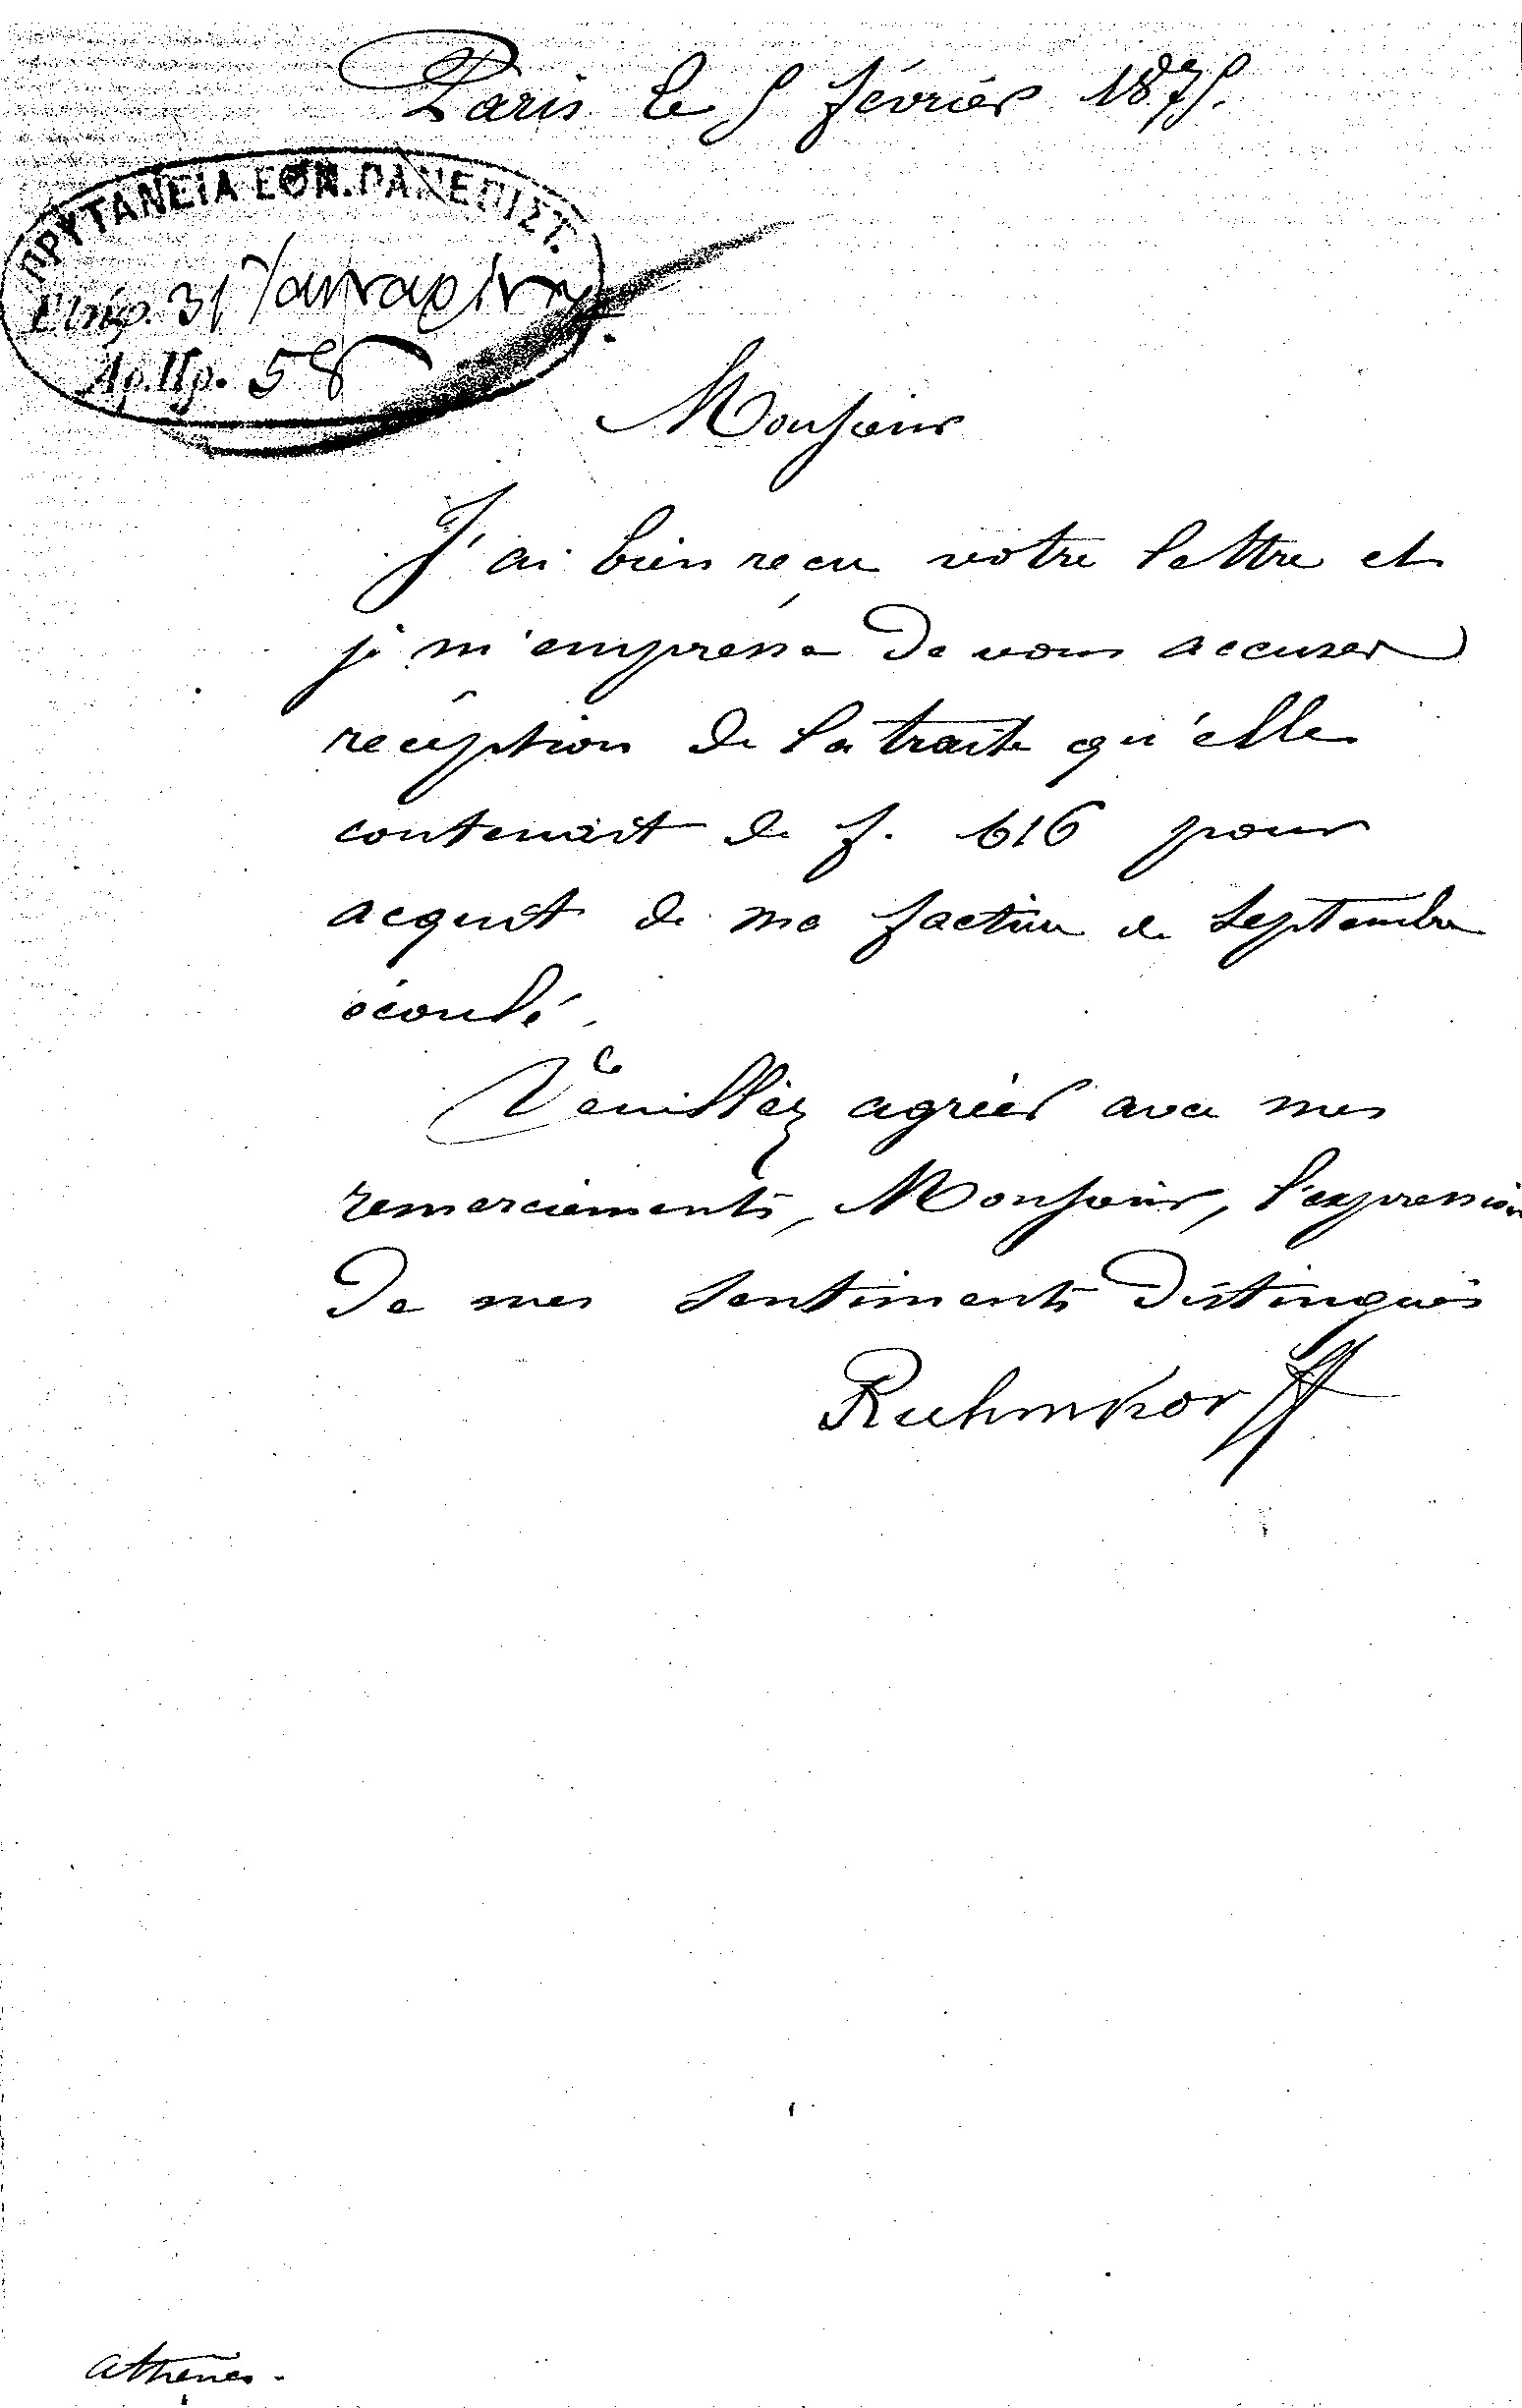 Paris le 5 février 1875.
ΠΡΥΤΑΝΕΙΑ ΕΘΝ. ΠΑΝΕΠΙΣΤ.
Ἐλήφ. 31 Ἰανναρίου
Ἀρ. Πρ. 58
Monsieur
J'ai bien reçu votre lettre et
je m'empresse de vous accuser
reception de la traite qu'elle
contenait de f. 616 pour
acquit de ma facture de septembre
écoulé.
Veuillez agréer avec mes
remerciements, Monsieur, l'expression
de mes sentiments distingués
Ruhmkorff
Athènes.